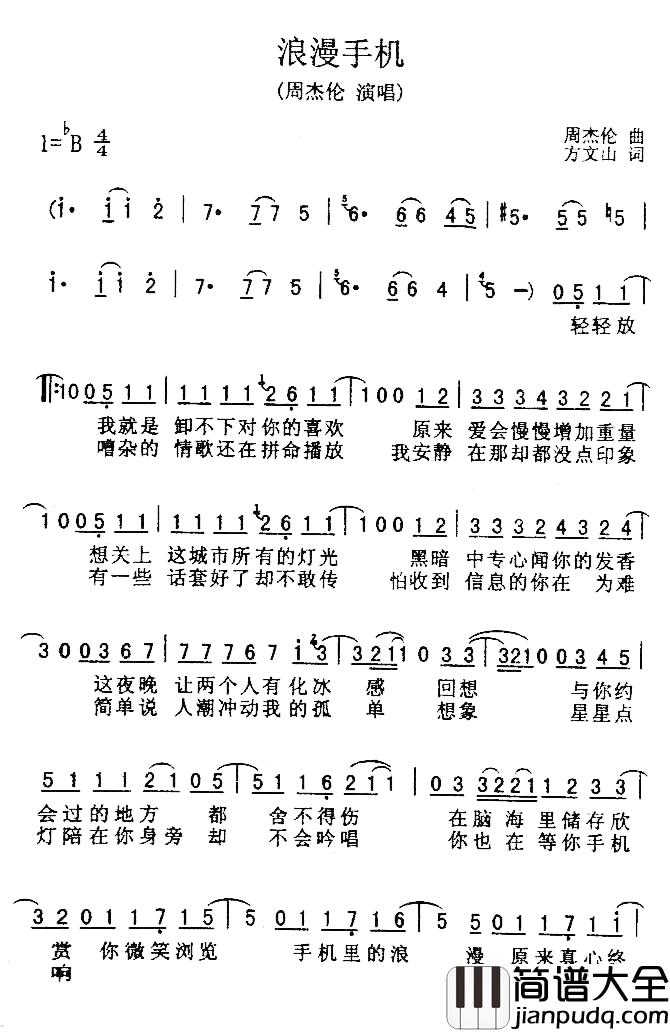 浪漫手机
(周杰伦 演唱)
1=♭B 4/4
周杰伦 曲
方文山 词
(i· i i 2 | 7· 7 7 5 | 6· 6 6 4 5 | #5· 5 5 ♮5
i· i i 2 | 7· 7 7 5 | 6· 6 6 4 | 5 -) 0 5 1 1 |
轻轻放
1 0 0 5 1 1 | 1 1 1 1 2 6 1 1 | 1 0 0 1 2 | 3 3 3 4 3 2 2 1 |
我就是 卸不下对你的喜欢 原来 爱会慢慢增加重量
嘈杂的 情歌还在拼命播放 我安静 在那却都没点印象
1 0 0 5 1 1 | 1 1 1 1 2 6 1 1 | 1 0 0 1 2 | 3 3 3 3 4 3 2 4 |
想关上 这城市所有的灯光 黑暗 中专心闻你的发香
有一些 话套好了却不敢传 怕收到 信息的你在 为难
3 0 0 3 6 7 | 7 7 7 6 7 i 3 | 3 2 1 0 3 3 | 3 2 1 0 0 3 4 5 |
这夜晚 让两个人有化冰 感 回想 与你约
简单说 人潮冲动我的孤 单 想象 星星点
5 1 1 1 2 1 0 5 | 5 1 1 6 2 1 | 1 0 3 3 2 2 1 1 2 3 3 |
会过的地方 都 舍不得伤 在脑 海里储存欣
灯陪在你身旁 却 不会吟唱 你也在 等你手机
3 2 0 1 1 7 1 5 | 5 0 1 1 7 1 5 | 5 5 0 1 1 7 1 i |
赏 你微笑浏览 手机里的浪 漫 原来真心终
响
简谱大全
jianpudq.com